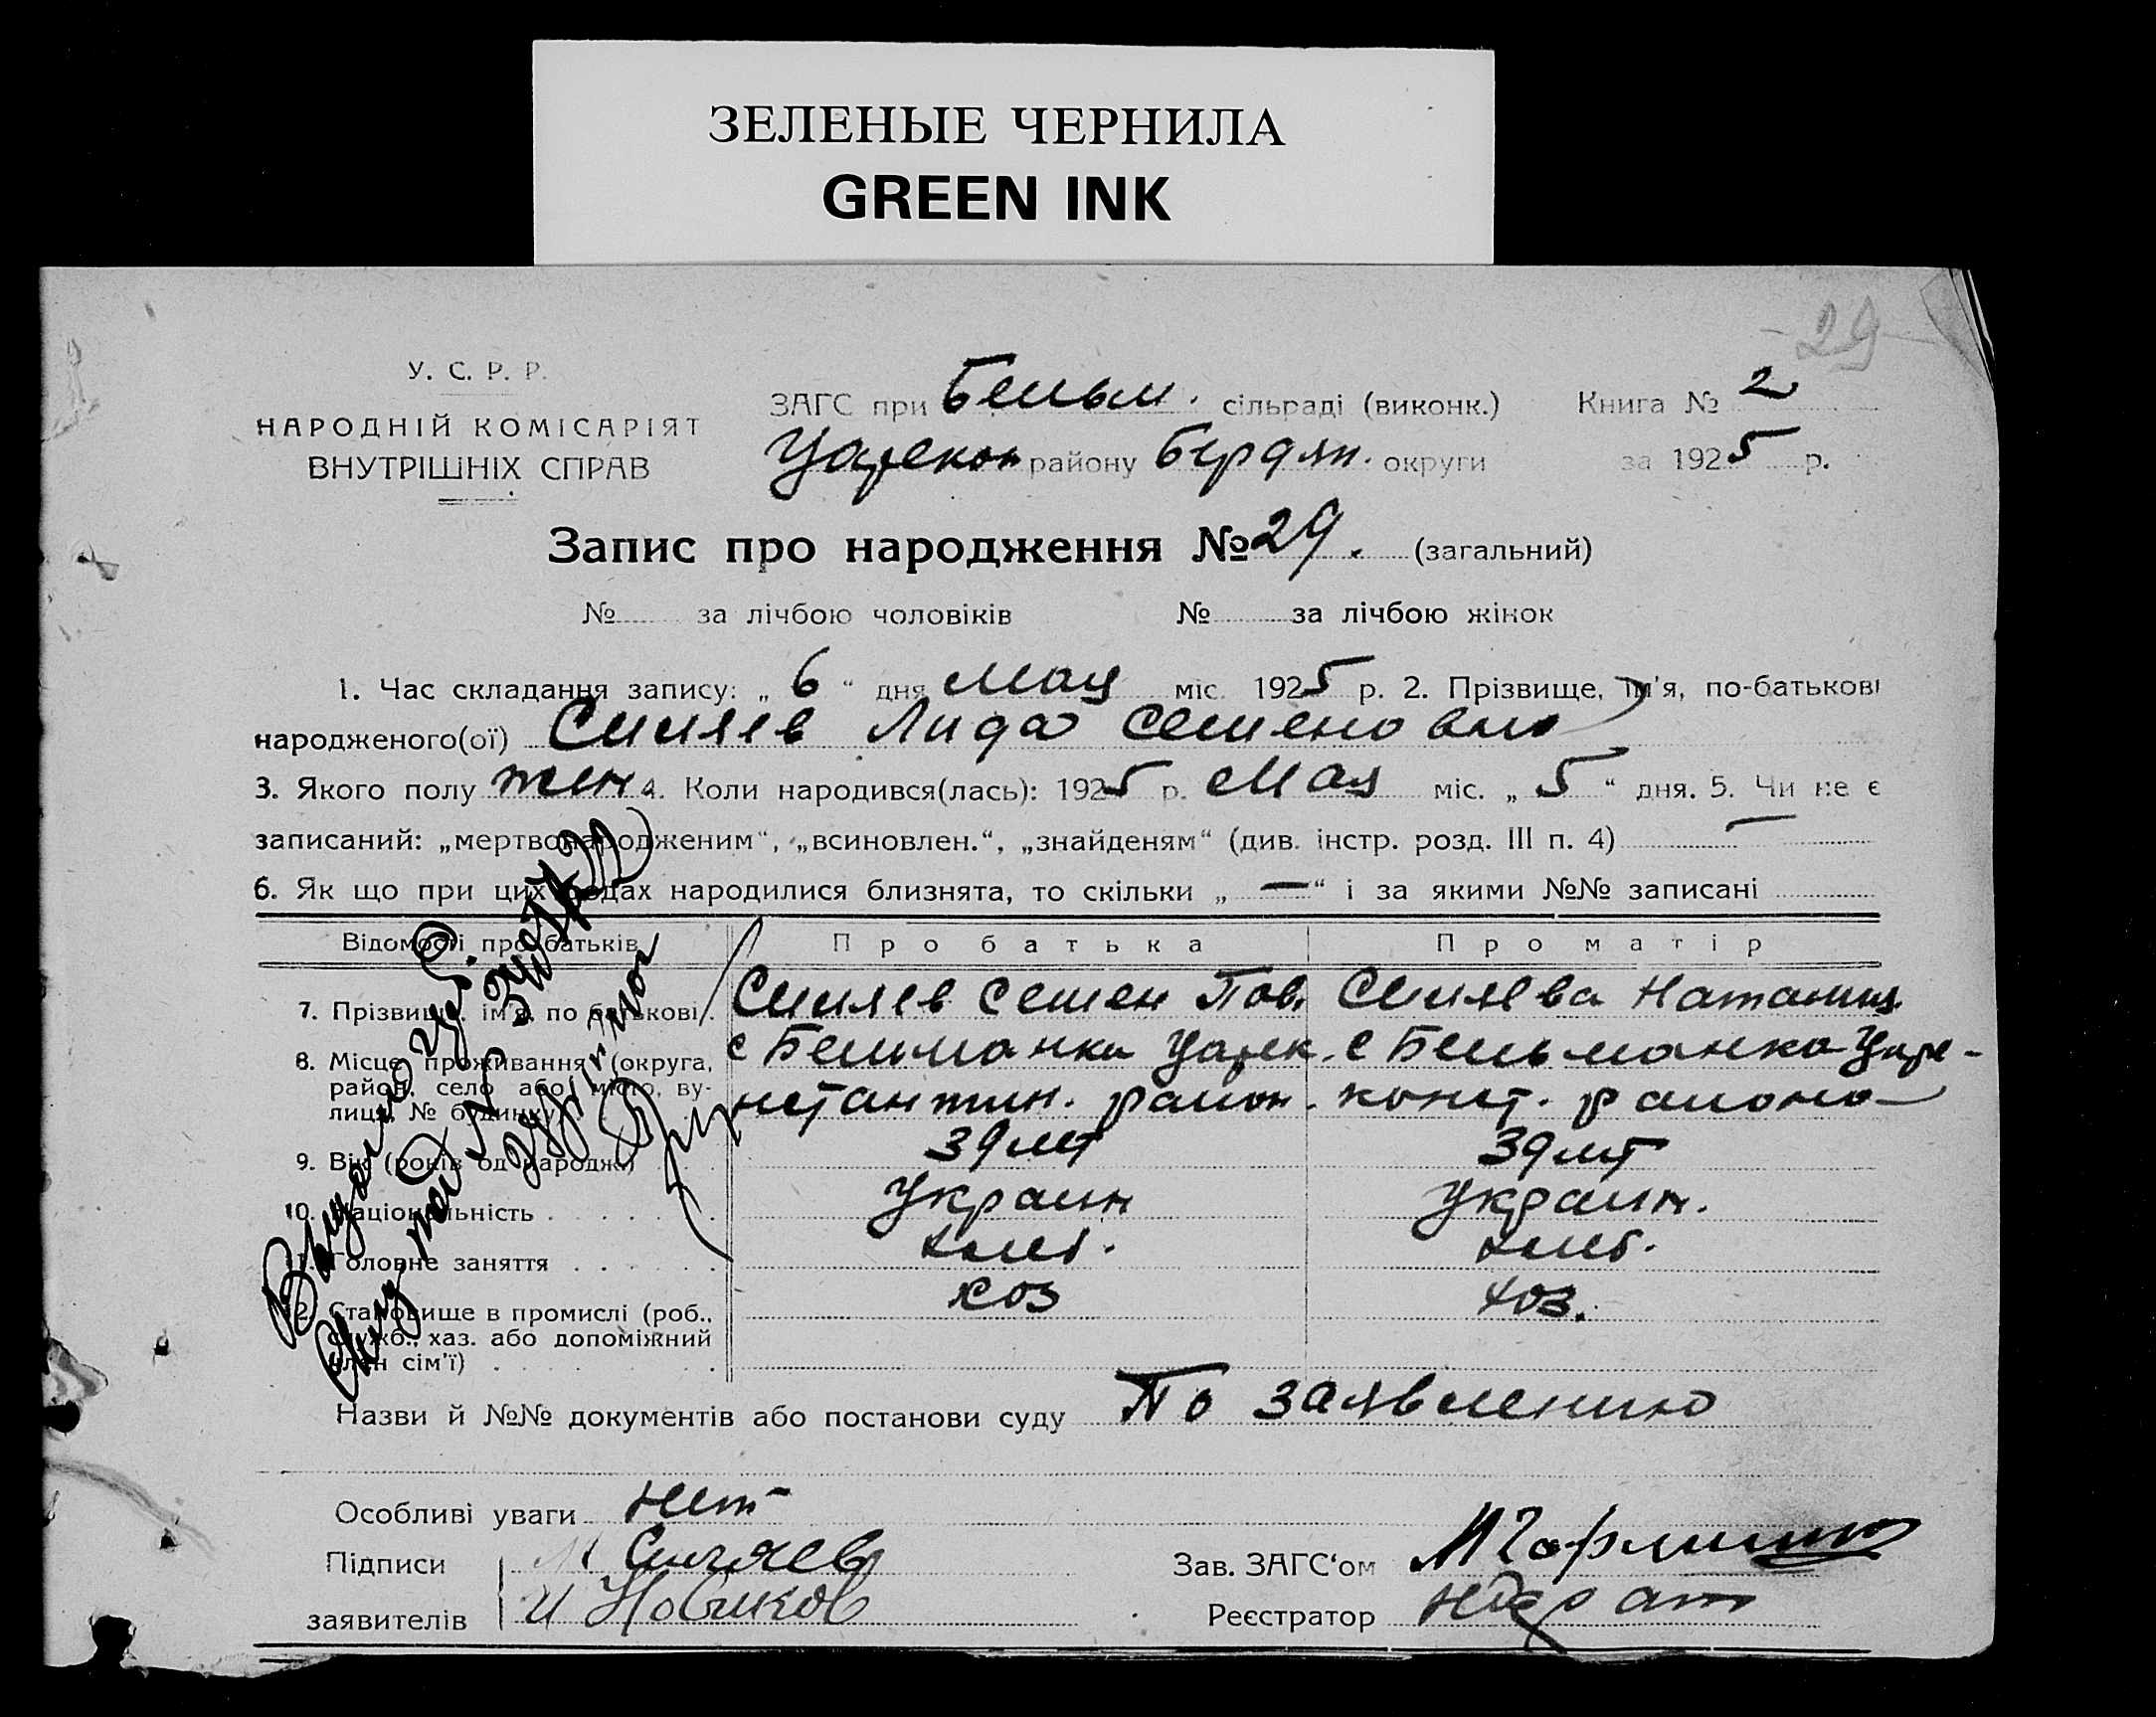 ЗЕЛЕНЫЕ ЧЕРНИЛА
GREEN INK
29
У. С. Р. Р.
НАРОДНІЙ КОМІСАРІЯТ
ВНУТРІШНІХ СПРАВ
ЗАГС при Бельм. сільраді (виконк.) Книга № 2
Царекон району Бердян. округи за 1925 р.
Запис про народження № 29. (загальний)
№ за лічбою чоловіків № за лічбою жінок
1. Час складання запису: „ 6 “ дня Мая міс. 1925 р. 2. Прізвище, ім'я, по-батькові
народженого(ої) Синяев Лида Семеновна
3. Якого полу жен 4. Коли народився(лась): 1925 р. Мая міс. „ 5 “ дня. 5. Чи не є
записаний: „мертвонародженим“, „всиновлен.“, „знайденям“ (див. інстр. розд. III п. 4) —
6. Як що при цих родах народилися близнята, то скільки „ — “ і за якими №№ записані
Відомості про батьків Про батька Про матір
7. Прізвище, ім'я, по батькові Синяев Семен Пав. Синяева Наталия
8. Місце проживання (округа, район, село або місто, вулиця, № будинку)
с Бельманки Царек. с Бельманка Царе-
нстантин. район. конст. района
9. Вік (років од народж.) 39 лет 39 лет
10. Національність Украин Украин.
11. Головне заняття хлеб. хлеб.
12. Становище в промислі (роб., служб., хаз. або допоміжний член сім'ї) хоз хоз.
Назви й №№ документів або постанови суду По заявлению
Особливі уваги Нет
Підписи Синяев Зав. ЗАГС‘ом
заявителів И Новиков Реєстратор